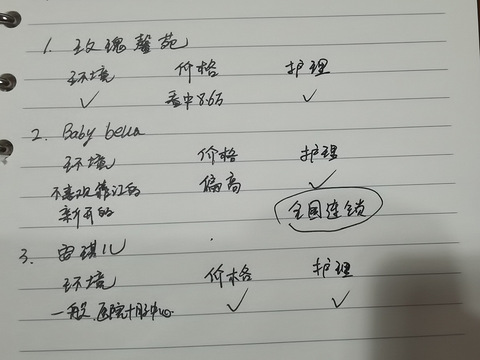 1. 玫瑰馨苑
环境 价格 护理
✓ 看中8.6万 ✓
2. Baby bella
环境 价格 护理
不喜欢靠江的 偏高 ✓
新开的 全国连锁
3. 宙琪儿
环境 价格 护理
一般, 医院月子中心. ✓ ✓